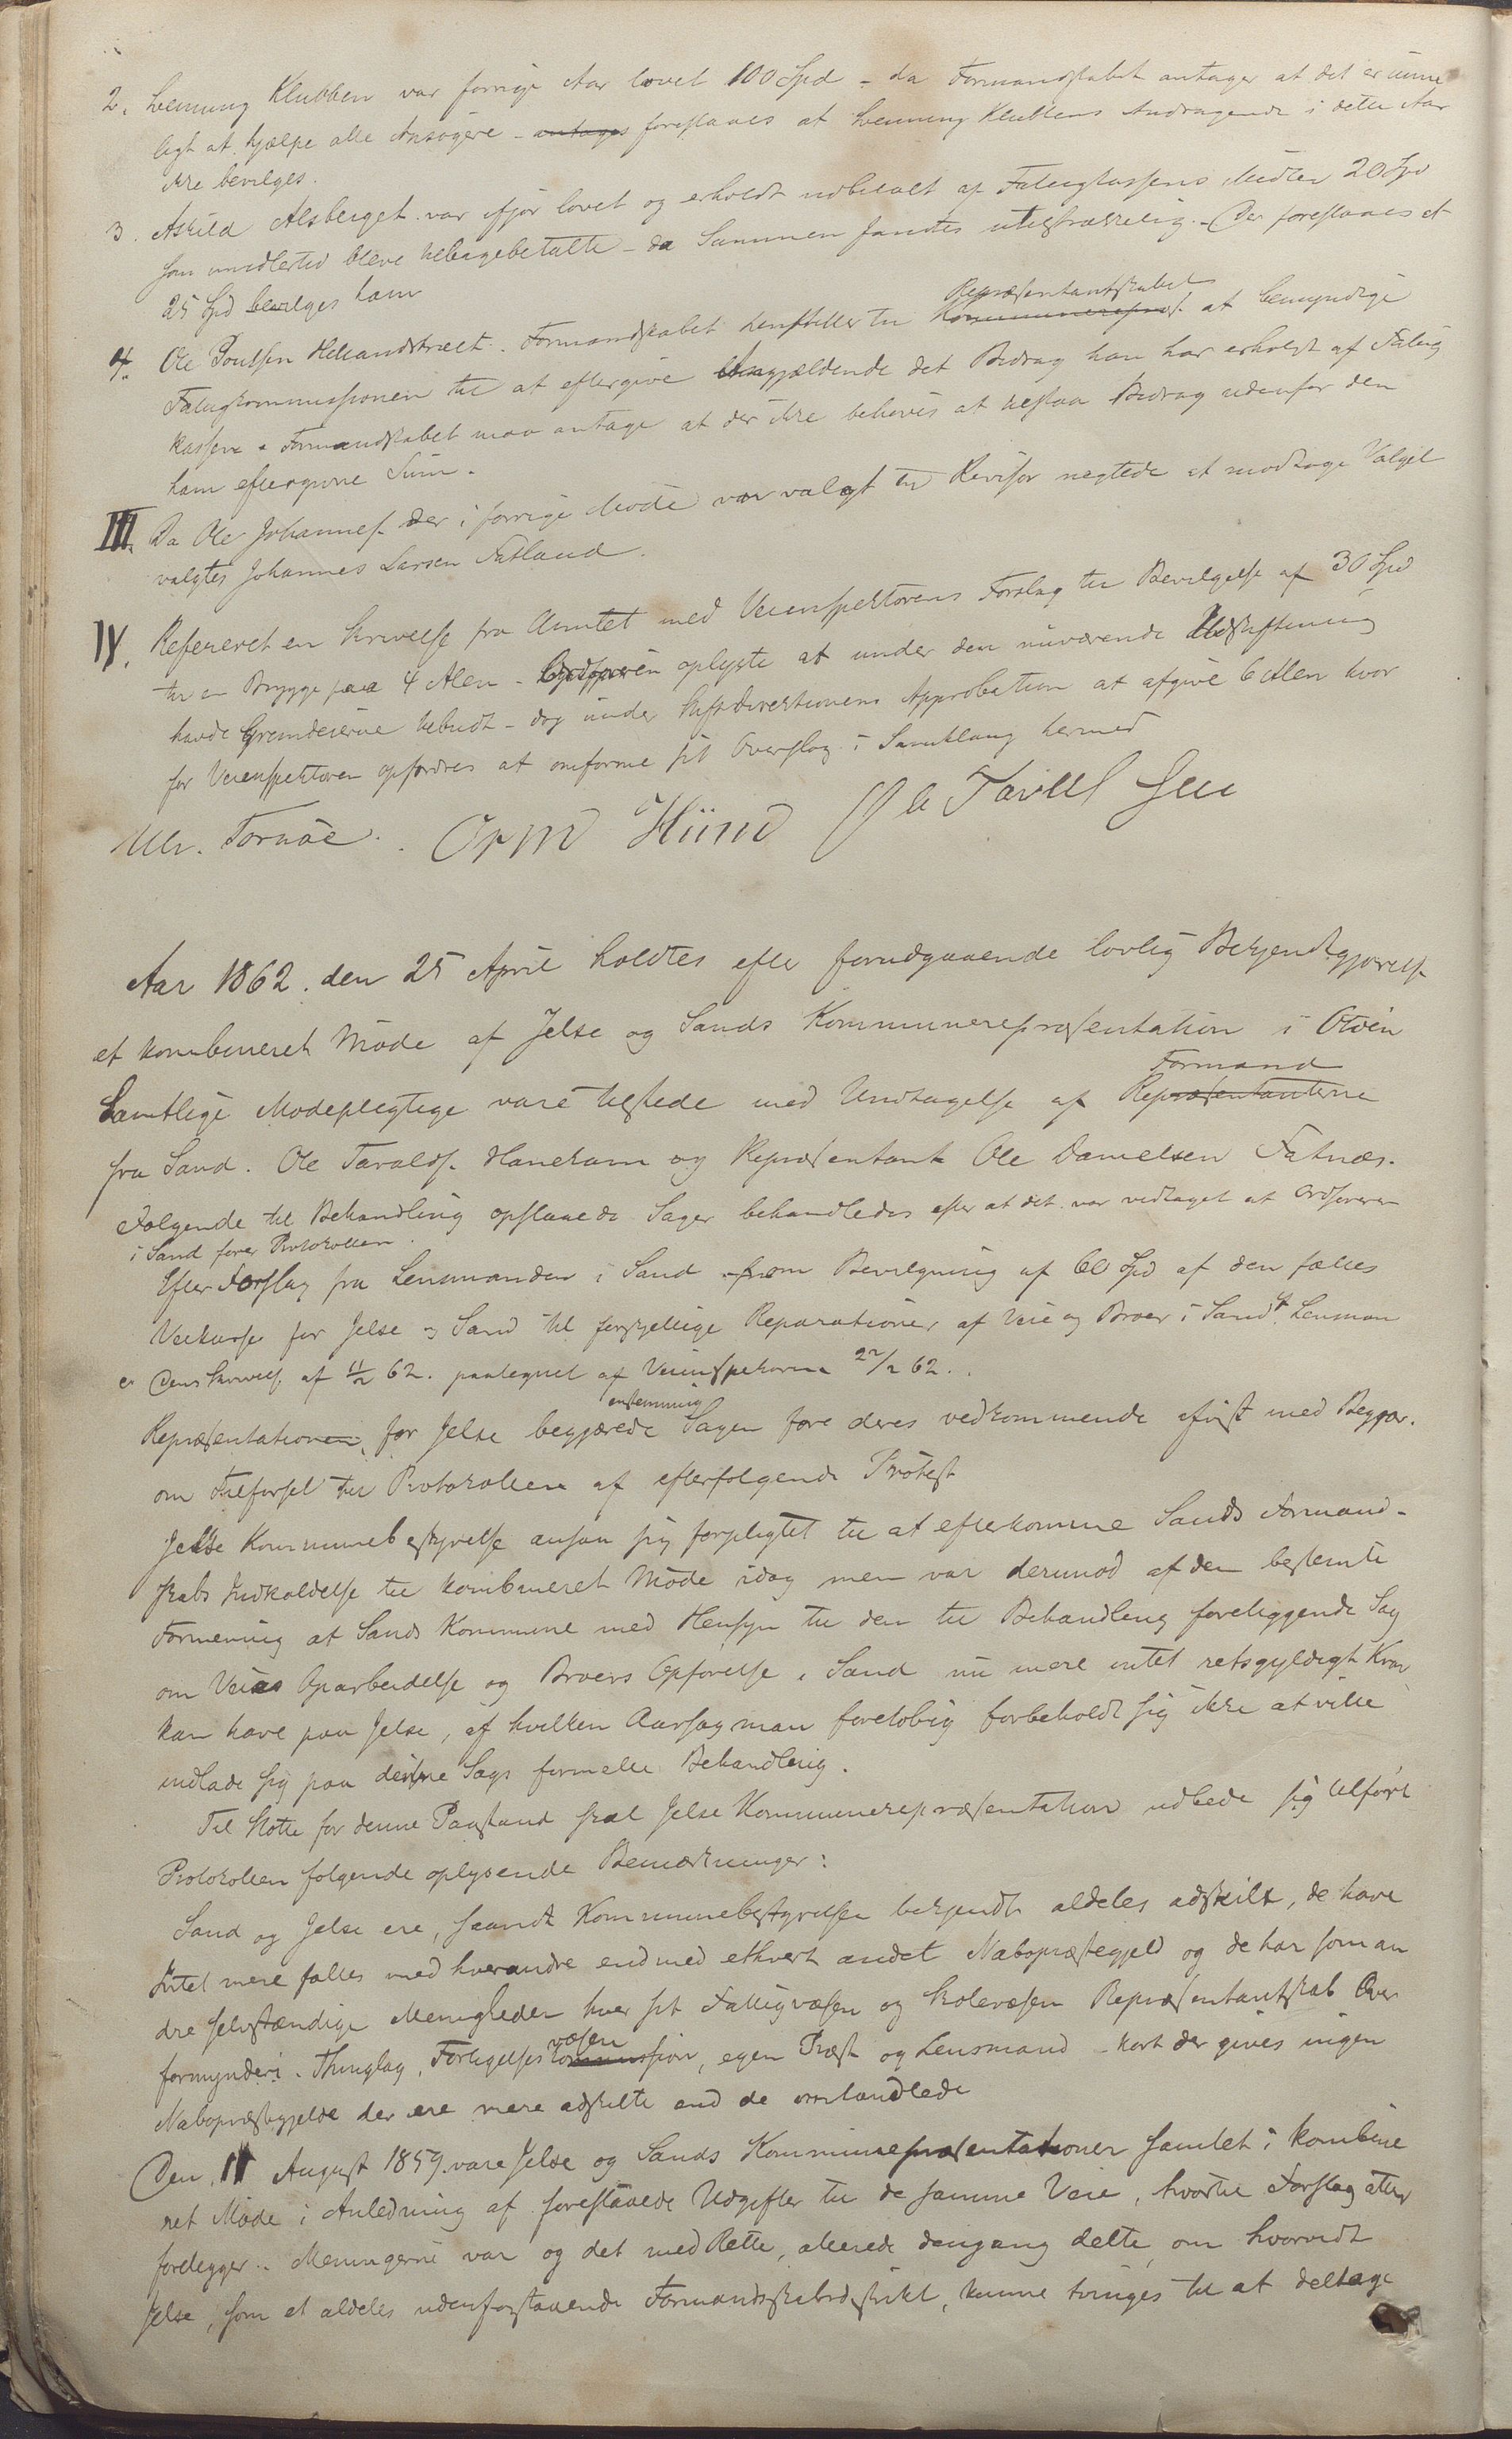 2. Svenning Klubben var forrige Aar lovet 100 Spd - da Formandskabet antager at det er umu
ligt at hjælpe alle Ansøgere - antages foreslaaes at Svenning Klubbens Andragende i dette Aar
ikke bevilges.
3. Askild Alsberget var ifjor lovet og erholdt udbetalt af Fatigkassens Midler 20 Spd
som imidlertid bleve tilbagebetalte - da Summen fandtes utilstrækkelig. - Der foreslaaes at
25 Spd bevilges ham
4. Ole Poulsen Helland. Formandskabet henstiller til Repræsentantskabet at bemyndige
Fatigkommissionen til at eftergive Angjældende det Bidrag han har erholdt af Fatig
kassen. Formandskabet maa antage at der ikke behøves at tilstaa Bidrag udenfor den
ham eftergivne Sum.
III. Da Ole Johannes. der i forrige Møde var valgt til Revisor nægtede at modtage Valget
valgtes Johannes Larsen Fatland.
IV. Refereret en Skrivelse fra Amtet med Veiinspektørens Forslag til Bevilgelse af 30 Spd
til en Brygge paa 4 Alen - Ordføreren oplyste at under den nuværende Udskiftning
havde Grundeierne tilbudt - dog under Stiftdirektionens Approbation at afgive 6 Alen hvor
for Veiinspektøren opfordres at omforme sit Overslag i Samklang hermed
Ulr. Tornøe. Orm Hiim Ole Tarvels Sen
Aar 1862. den 25 April holdtes efter forudgaaende lovlig Bekjendtgjørelse
et kombineret Møde af Jelse og Sands Kommunerepræsentation i
Formand
Samtlige Mødepligtige vare tilstede med Undtagelse af Repræsentanterne
fra Sand. Ole Taralds. Hanekam og Repræsentant Ole Danielsen Fatnæs.
Følgende til Behandling opstaaede Sager behandledes efter at det var vedtaget at Ordføreren
i Sand fører Protokollen.
Efter Forslag fra Lensmanden i Sand om Bevilgning af 60 Spd af den fælles
Veikasse for Jelse og Sand til forskjellige Reparationer af Veie og Broer i Sand cf Lensman
dens Skrivelse af 11/2 62. paategnet af Veiinspektøren 22/2 62.
enstemmig
Repræsentationen for Jelse begjærede Sagen fore deres vedkommende afvist med Begjær.
om Tilførsel til Protokollen af efterfølgende Protest
Jelse Kommunebestyrelse ansaa sig forpligtet til at efterkomme Sands Formand-
skabs Indkaldelse til kombineret Møde idag men var derimod af den bestemte
Formening at Sands Kommune med Hensyn til den til Behandling foreliggende Sag
om Veies Oparbeidelse og Broers Opførelse i Sand nu mere intet retsgyldigt Krav
kan have paa Jelse, af hvilken Aarsag man foreløbig forbeholdt sig ikke at ville
indlade sig paa denne Sags formelle Behandling.
Til Støtte for denne Paastand skal Jelse Kommunerepræsentation udbede sig tilført
Protokollen følgende oplysende Bemærkninger:
Sand og Jelse ere, saavidt Kommunebestyrelsen bekjendt aldeles adskilt, de have
Intet mere fælles med hverandre end med ethvert andet Nabopræstegjeld og de har som an
dre selvstændige Menigheder hver sit Fattigvæsen og Skolevæsen Repræsentantskab Over
formynderi. Thinglag, Forligelsesvæsen, egen Præst og Lensmand - kort der gives ingen
Nabopræstegjelde der ere mere adskilte end de omhandlede
Den 11 August 1859. vare Jelse og Sands Kommunepræsentationer samlet i kombine
ret Møde i Anledning af foreslaaede Udgifter til de samme Veie, hvortil Forslag atter
forelegger. Meningerne var og det med Rette, allerede dengang delte, om hvorvidt
Jelse, som et aldeles udenforstaaende Formandskabsdistrikt, kunne tvinges til at deltage